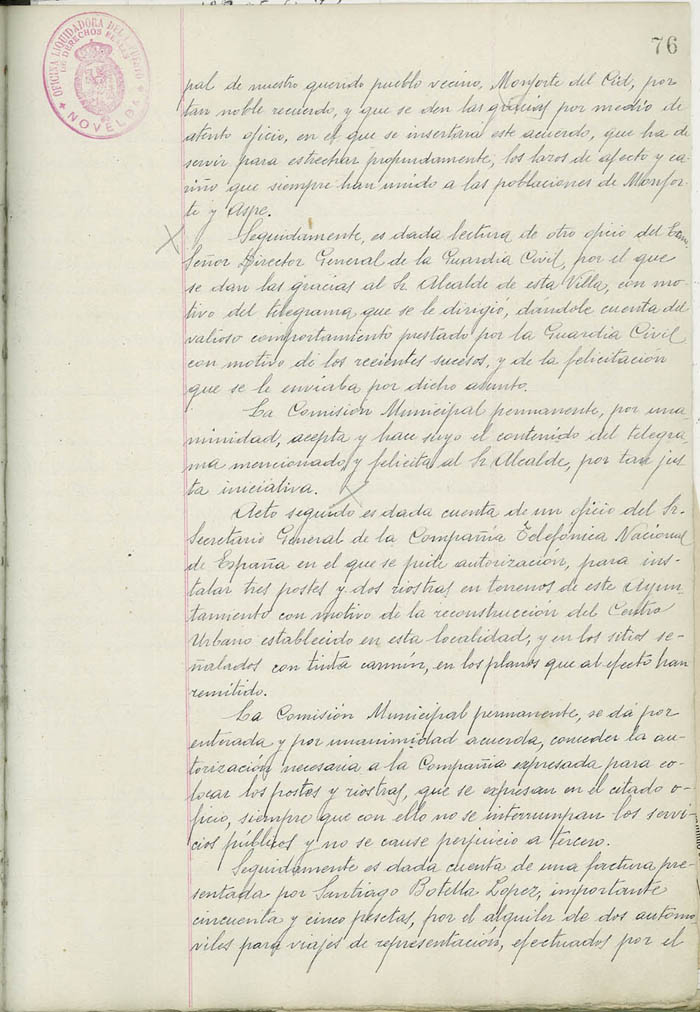 76
OFICINA LIQUIDADORA DEL
DE DERECHOS REALES
NOVELDA
pal de nuestro querido pueblo vecino, Monforte del Cid, por
tan noble recuerdo, y que se den las gracias por medio de
atento oficio, en el que se insertará este acuerdo, que ha de
servir para estrechar profundamente, los lazos de afecto y ca-
riño que siempre han unido a las poblaciones de Monfor-
te y Aspe.
Seguidamente, es dada lectura de otro oficio del Exmo
Señor Director General de la Guardia Civil, por el que
se dan las gracias al Sr. Alcalde de esta Villa, con mo-
tivo del telegrama que se le dirigió, dándole cuenta del
valioso comportamiento prestado por la Guardia Civil
con motivo de los recientes sucesos, y de la felicitación
que se le enviaba por dicho asunto.
La Comisión Municipal permanente, por una
nimidad, acepta y hace suyo el contenido del telegra
ma mencionado, y felicita al Sr. Alcalde, por tan jus
ta iniciativa.
Acto seguido es dada cuenta de un oficio del Sr.
Secretario General de la Compañía Telefónica Nacional
de España en el que se pide autorización, para ins-
talar tres postes y dos riostras en terrenos de este Ayun-
tamiento con motivo de la reconstrucción del Centro
Urbano establecido en esta localidad, y en los sitios se-
ñalados con tinta carmín, en los planos que al efecto han
remitido.
La Comisión Municipal permanente, se dá por
enterada y por unanimidad acuerda, conceder la au-
torización necesaria a la Compañia expresada para co-
locar los postes y riostras, que se expresan en el citado o-
ficio, siempre que con ello no se interrumpan los servi-
cios públicos y no se cause perjuicio a tercero.
Seguidamente es dada cuenta de una factura pre-
sentada por Santiago Botella López, importante
cincuenta y cinco pesetas, por el alquiler de dos automo-
viles para viajes de representación, efectuados por el